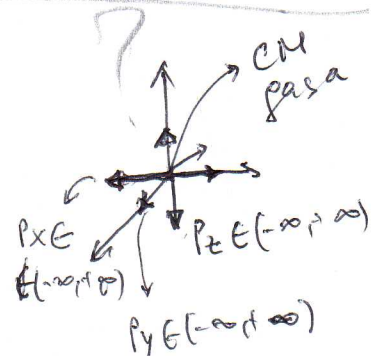 ?
CM
gasa
Px ∈
∈(-∞,+∞)
Pz ∈(-∞,+∞)
Py ∈(-∞,+∞)